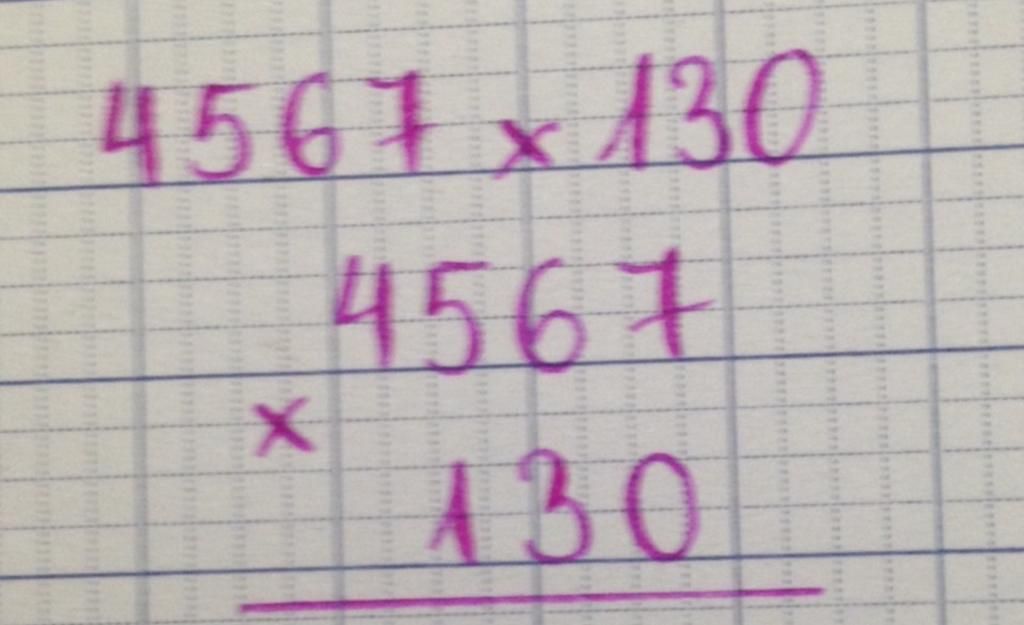 4567 x 130
4567
x
130